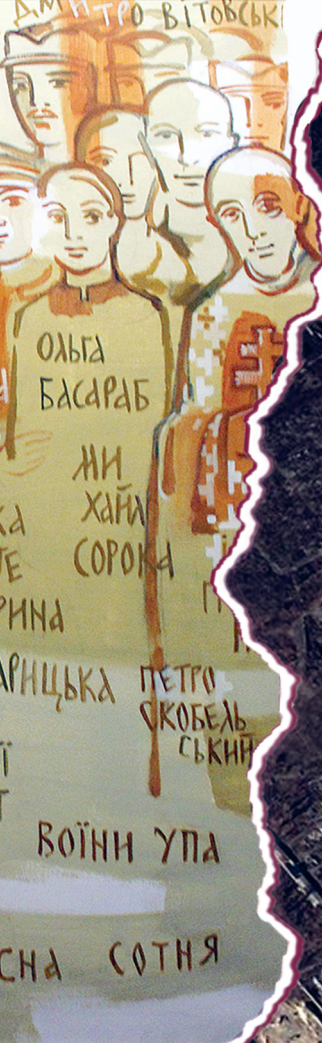 ДМИТРО ВІТОВСЬК
ОЛЬГА
БАСАРАБ
МИ
ХАЙЛ
СОРОКА
КА
ТЕ
РИНА
АРИЦЬКА
ПЕТРО
СКОБЕЛЬ
СЬКИЙ
ВОЇНИ УПА
СНА СОТНЯ